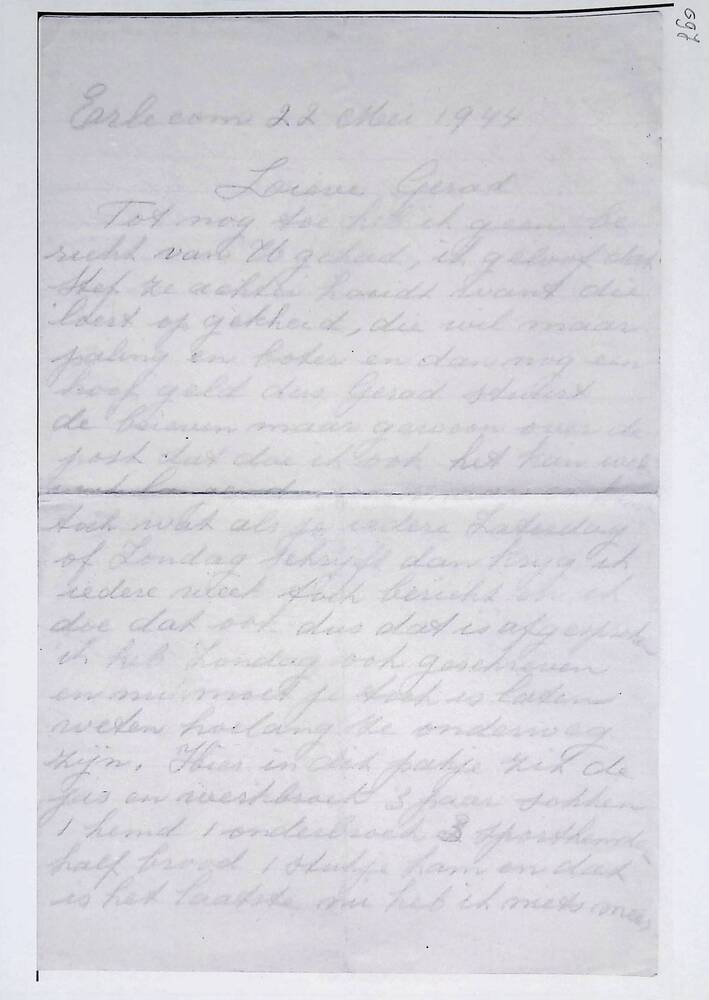 698
Erlecom 22 Mei 1944
Lieve Gerad
Tot nog toe heb ik geen be
richt van U gehad, ik geloof dat
Stef ze achter houdt want die
loert op gekheid, die wil maar
paling en boter en dan nog een
hoop geld dus Gerad stuurt
de brieven maar gewoon over de
post dat doe ik ook het kan wel
toch wat als je iedere Zaterdag
of Zondag schrijft dan krijg ik
iedere week toch bericht en ik
doe dat ook dus dat is afgesproken
ik heb Zondag ook geschreven
en nu moet je toch is laten
weten hoelang ze onderweg
zijn. Hier in dit pakje zit de
jas en werkbroek 3 paar sokken
1 hemd 1 onderbroek 3 sporthemden
half brood 1 stukje ham en dat
is het laatste nu heb ik niets meer